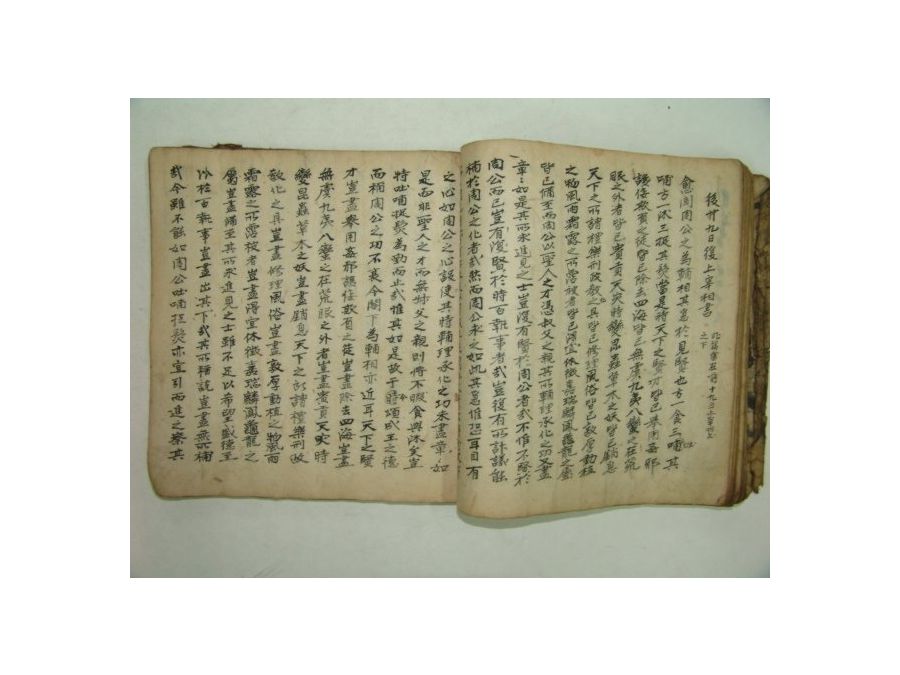 後廿九日復上宰相書
愈聞周公之為輔相其急於見賢也方一食三哺其
哺方一沐三捉其髮當是時天下之賢才皆已擧用姦邪
讒佞欺負之徒皆已除去四海皆已無虞九夷八蠻之在荒
服之外者皆已賓貢天灾時變昆蟲草木之妖皆已銷息
天下之所謂禮樂刑政敎之具皆已修理風俗皆已敦厚動植
之物風雨霜露之所霑被者皆已得宜休徵嘉瑞麟鳳龜龍之屬
皆已備至而周公以聖人之才憑叔父之親其所輔理承化之功又盡
章〻如是其所求進見之士豈復有賢於周公者哉不惟不賢於
周公而已豈復有賢於時百執事者哉豈復有所計議能
補於周公之化者哉然而周公求之如此其急惟恐耳目有
之心如周公之心設使其時輔理承化之功未盡章〻如
是而非聖人之才而無叔父之親則將不暇食與沐矣豈
特吐哺捉髮為勤而止哉惟其如是故于今頌成王之德
而稱周公之功不衰今閤下為輔相亦近耳天下之賢
才豈盡擧用姦邪讒佞欺負之徒豈盡除去四海豈盡
無虞九夷八蠻之在荒服之外者豈盡賓貢天灾時
變昆蟲草木之妖豈盡銷息天下之所謂禮樂刑政
敎化之具豈盡修理風俗豈盡敦厚動植之物風雨
霜露之所霑被者豈盡得宜休徵嘉瑞麟鳳龜龍之
屬豈盡備至其所求進見之士雖不足以希望盛德至
比於百執事豈盡出其下哉其所稱說豈盡無所補
哉今雖不能如周公吐哺捉髮亦宜引而進之察其